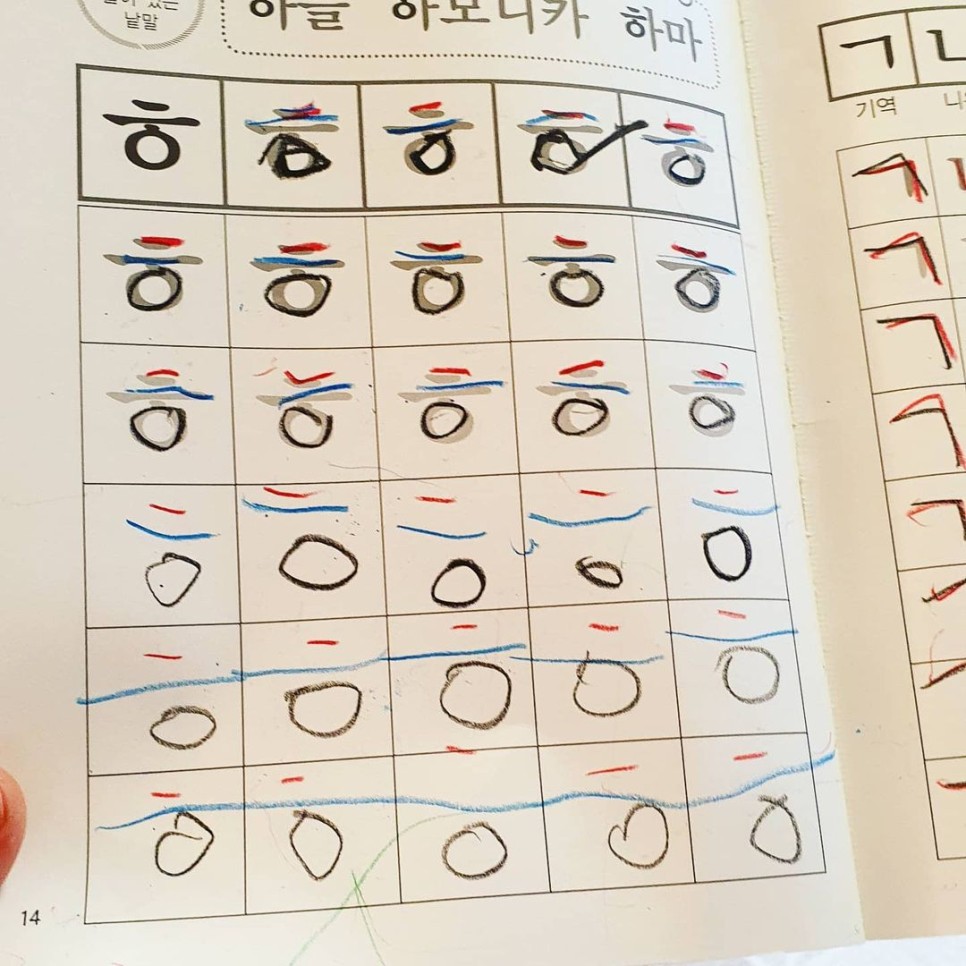 낱말
하늘 하모니카 하마
ㅎ ㅎ ㅎ ㅎ ㅎ
ㅎ ㅎ ㅎ ㅎ ㅎ
ㅎ ㅎ ㅎ ㅎ ㅎ
ㅎ ㅎ ㅎ ㅎ ㅎ
ㅎ ㅎ ㅎ ㅎ ㅎ
ㅎ ㅎ ㅎ ㅎ ㅎ
14
ㄱ ㄴ
기역
ㄱ
ㄱ
ㄱ
ㄱ
ㄱ